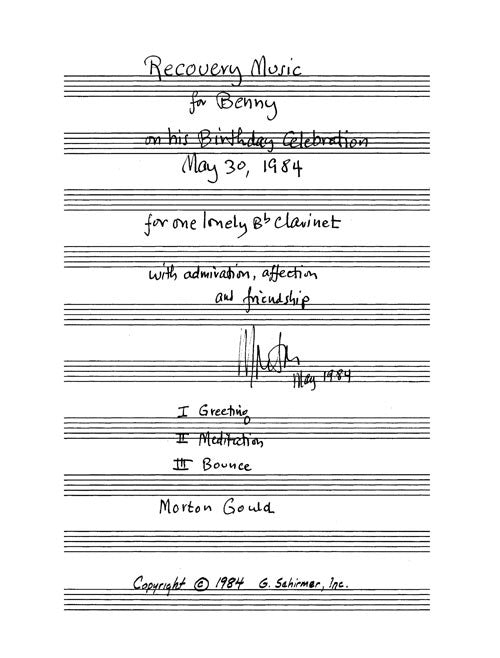 Recovery Music
for Benny
on his Birthday Celebration
May 30, 1984
for one lonely Bb Clarinet
with admiration, affection
and friendship
Morton
May 1984
I Greeting
II Meditation
III Bounce
Morton Gould
Copyright © 1984 G. Schirmer, Inc.